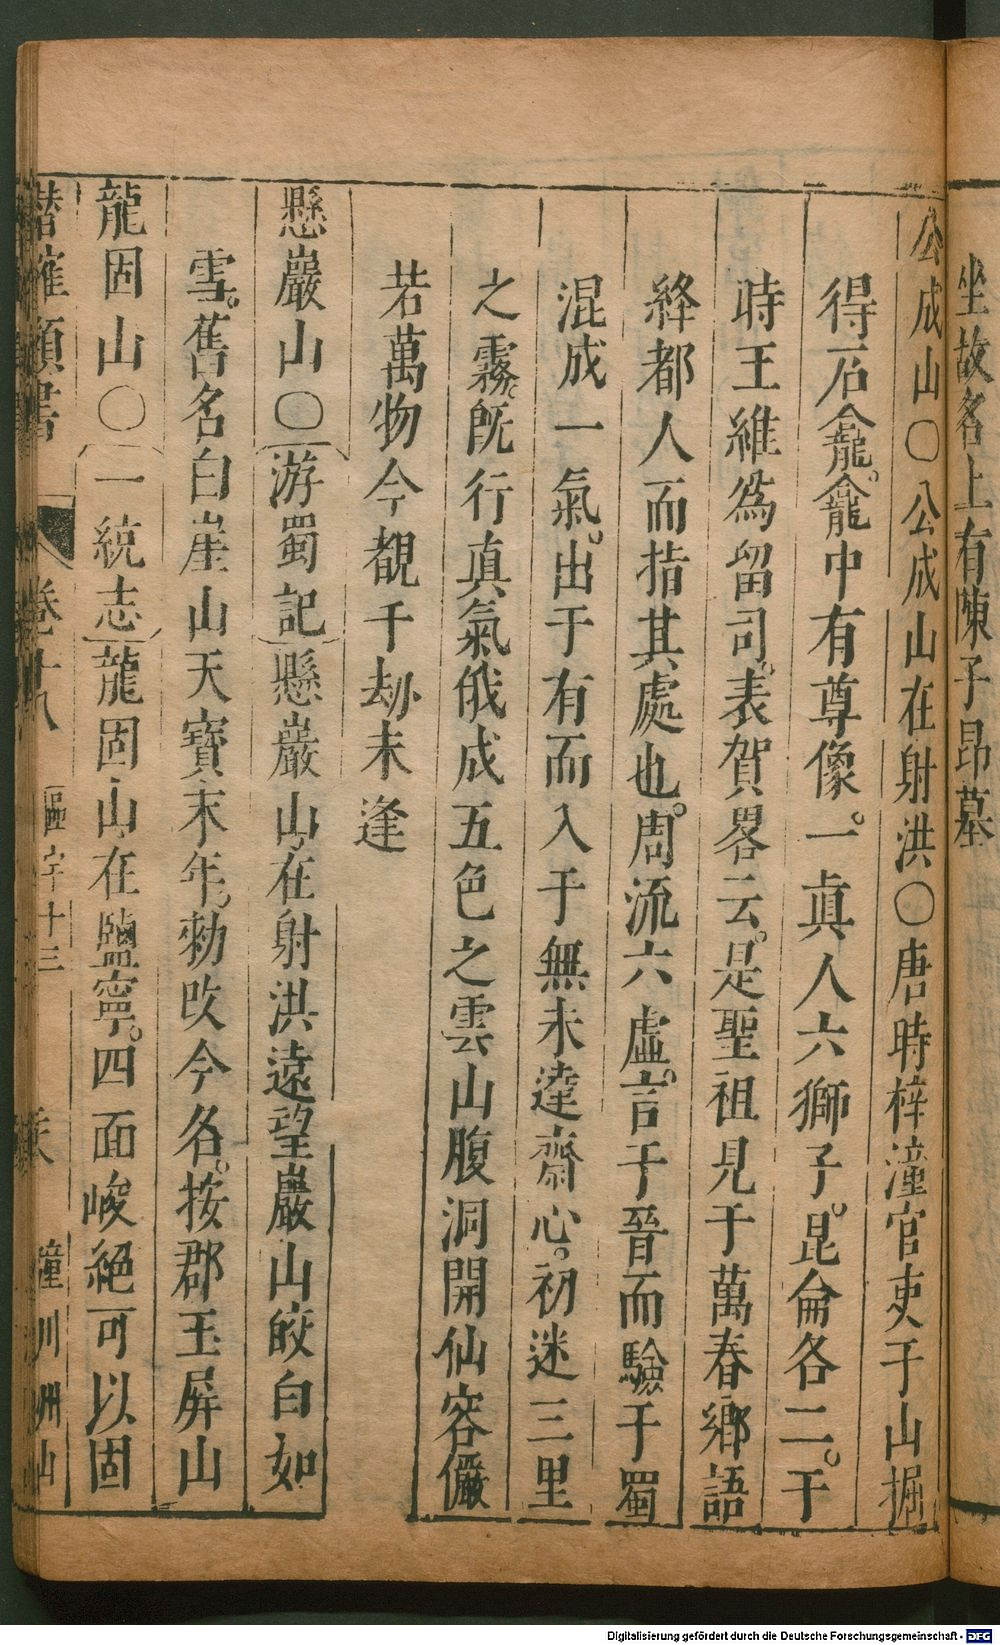 坐故名上有陳子昂墓
公成山○公成山在射洪○唐時梓潼官吏于山掘
得石龕。龕中有尊像。一眞人六獅子。昆侖各二。于
時王維爲留司。表賀畧云。是聖祖見于萬春鄉語
絳都人而指其處也。周流六虛。言于晉而驗于蜀
混成一氣。出于有而入于無未達齋心。初迷三里
之霧。旣行眞氣俄成五色之雲山腹洞開仙容儼
若萬物今覩千劫未逢
懸巖山○游蜀記懸巖山在射洪遠望巖山皎白如
雪。舊名白崖山天寶末年勑改今名。按郡玉屏山
龍固山○一統志龍固山在鹽寧。四面峻絕可以固
潛確類書 卷十八 區宇十三 潼川州山
Digitalisierung gefördert durch die Deutsche Forschungsgemeinschaft - DFG